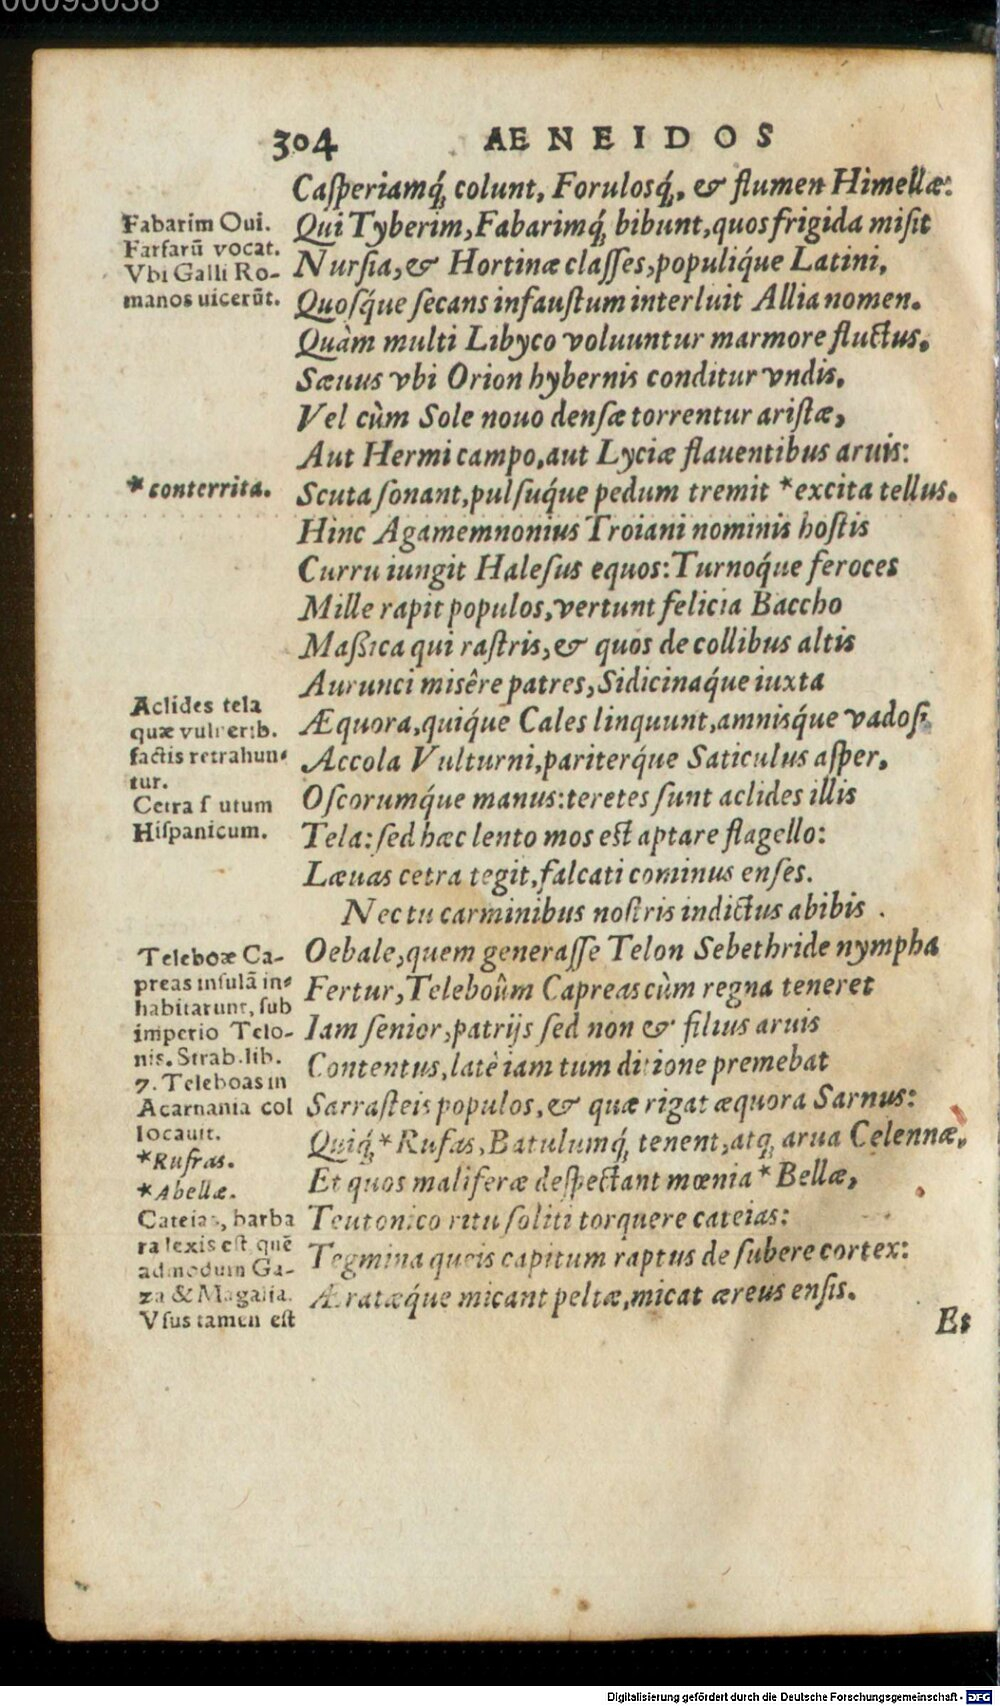 00093038
304 AENEIDOS
Caſperiamq́, colunt, Forulosq́, & flumen Himellæ:
Qui Tyberim, Fabarimq́, bibunt, quos frigida miſit
Nurſia, & Hortinæ claſſes, populiq́ue Latini,
Quoſq́ue ſecans infauſtum interluit Allia nomen.
Quàm multi Libyco voluuntur marmore fluctus.
Sæuus vbi Orion hybernis conditur vndis.
Vel cùm Sole nouo denſæ torrentur ariſtæ,
Aut Hermi campo, aut Lyciæ flauentibus aruis:
Scuta ſonant, pulſuq́ue pedum tremit *excita tellus.
Hinc Agamemnonius Troiani nominis hoſtis
Curru iungit Haleſus equos: Turnoq́ue feroces
Mille rapit populos, vertunt felicia Baccho
Maßica qui raſtris, & quos de collibus altis
Aurunci misêre patres, Sidicinaq́ue iuxta
Æquora, quiq́ue Cales linquunt, amnisq́ue vadoſi
Accola Vulturni, pariterq́ue Saticulus aſper.
Oſcorumq́ue manus: teretes ſunt aclides illis
Tela: ſed hæc lento mos eſt aptare flagello:
Læuas cetra tegit, falcati cominus enſes.
Nec tu carminibus noſtris indictus abibis.
Oebale, quem generaſſe Telon Sebethride nympha
Fertur, Teleboûm Capreas cùm regna teneret
Iam ſenior, patrijs ſed non & filius aruis
Contentus, latè iam tum ditione premebat
Sarraſteis populos, & quæ rigat æquora Sarnus:
Quiq́, *Rufas, Batulumq́, tenent, atq, arua Celennæ,
Et quos maliferæ deſpectant mœnia *Bellæ,
Teutonico ritu ſoliti torquere cateias:
Tegmina queis capitum raptus de ſubere cortex:
Æratæq́ue micant peltæ, micat æreus enſis.
Es
Fabarim Oui.
Farfarū vocat.
Vbi Galli Ro-
manos uicerūt.
*conterrita.
Aclides tela
quæ vulnerib.
factis retrahun-
tur.
Cetra ſcutum
Hiſpanicum.
Teleboæ Ca-
preas inſulā in-
habitarunt, ſub
imperio Telo-
nis. Strab. lib.
7. Teleboas in
Acarnania col
locauit.
*Rufras.
*Abellæ.
Cateias, barba
ra lexis eſt quē
admodum Ga-
za & Magalia.
Vſus tamen eſt
Digitalisierung gefördert durch die Deutsche Forschungsgemeinschaft - DFG